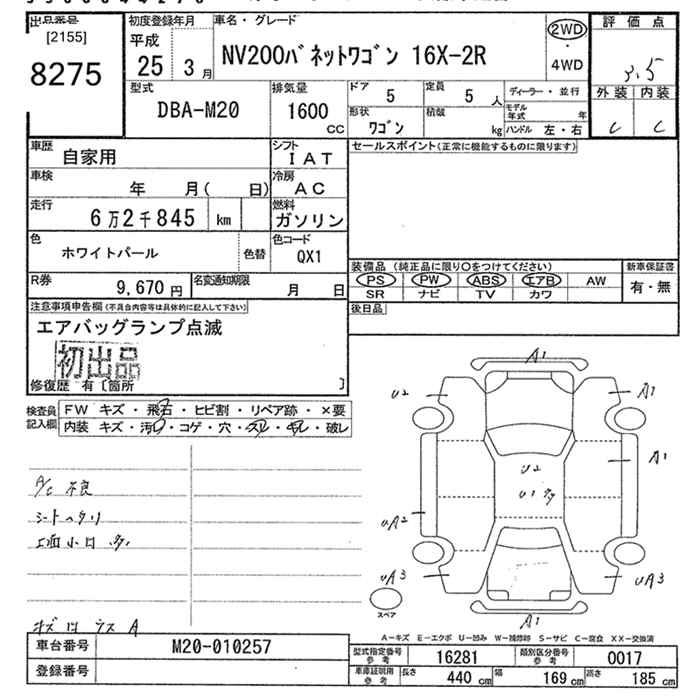 出品番号 初度登録年月 車名・グレード 評価点
[2155] 平成
8275 25 3月 NV200バネットワゴン 16X-2R 2WD・4WD 3.5
型式 排気量 ドア 定員 ディーラー・並行 外装 内装
DBA-M20 1600 CC 5 5人 モデル年式 年 C C
形状 積載
ワゴン kg ハンドル 左・右
車歴 自家用 シフト IAT セールスポイント(正常に機能するものに限ります)
車検 年 月( 日) 冷房 AC
走行 6万2千845 km 燃料 ガソリン
色 ホワイトパール 色替 色コード QX1
装備品 (純正品に限り○をつけてください) 新車保証書
PS PW ABS エアB AW 有・無
SR ナビ TV カワ
R券 9,670円 名変通知期限 月 日
後日品
注意事項申告欄(不具合内容等は具体的に記入して下さい)
エアバッグランプ点滅
初出品
修復歴 有〔箇所 〕
検査員記入欄 FW キズ・飛石・ヒビ割・リペア跡・×要
内装 キズ・汚れ・コゲ・穴・スレ・キレ・破レ
A1
U2 A1
U2 A1
U1 多
UA2
UA3 UA3
スペア
A/C 不良
シートヘタリ
上面小凹 多
A-キズ E-エクボ U-凹み W-補修跡 S-サビ C-腐食 XX-交換済
A1
車台番号 M20-010257
登録番号
型式指定番号参考 16281 類別区分番号参考 0017
車庫証明用参考 長さ 440 cm 幅 169 cm 高さ 185 cm